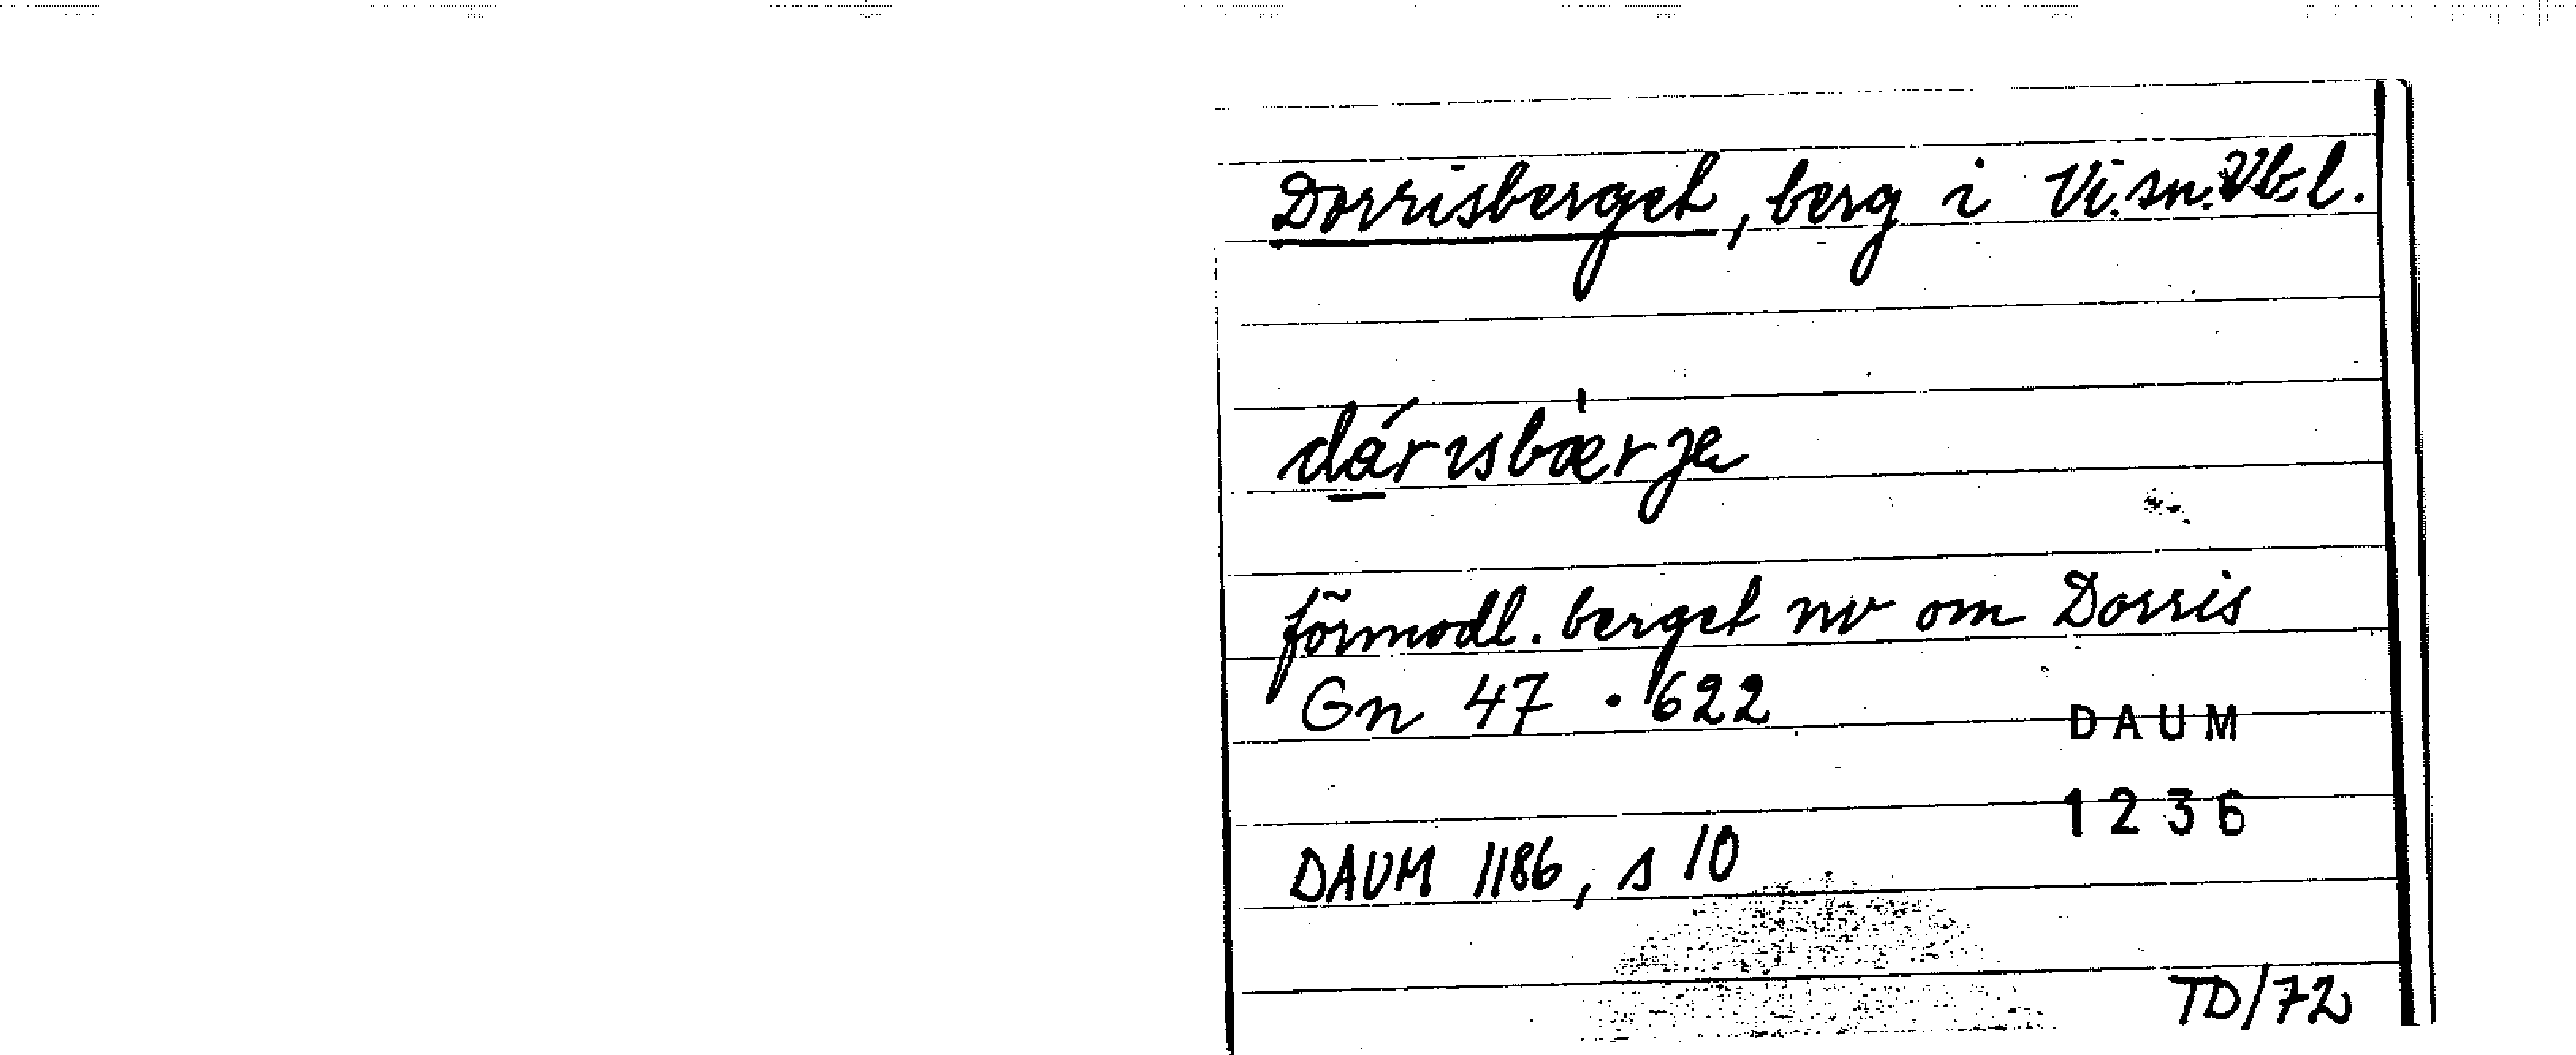 Dorrisberget, berg i Vi. sn. Vb. l.
dárısbær̍je
förmodl. berget nv om Dorris
Gn 47 · 622
DAUM
1236
DAUM 1186, s 10
TD/72